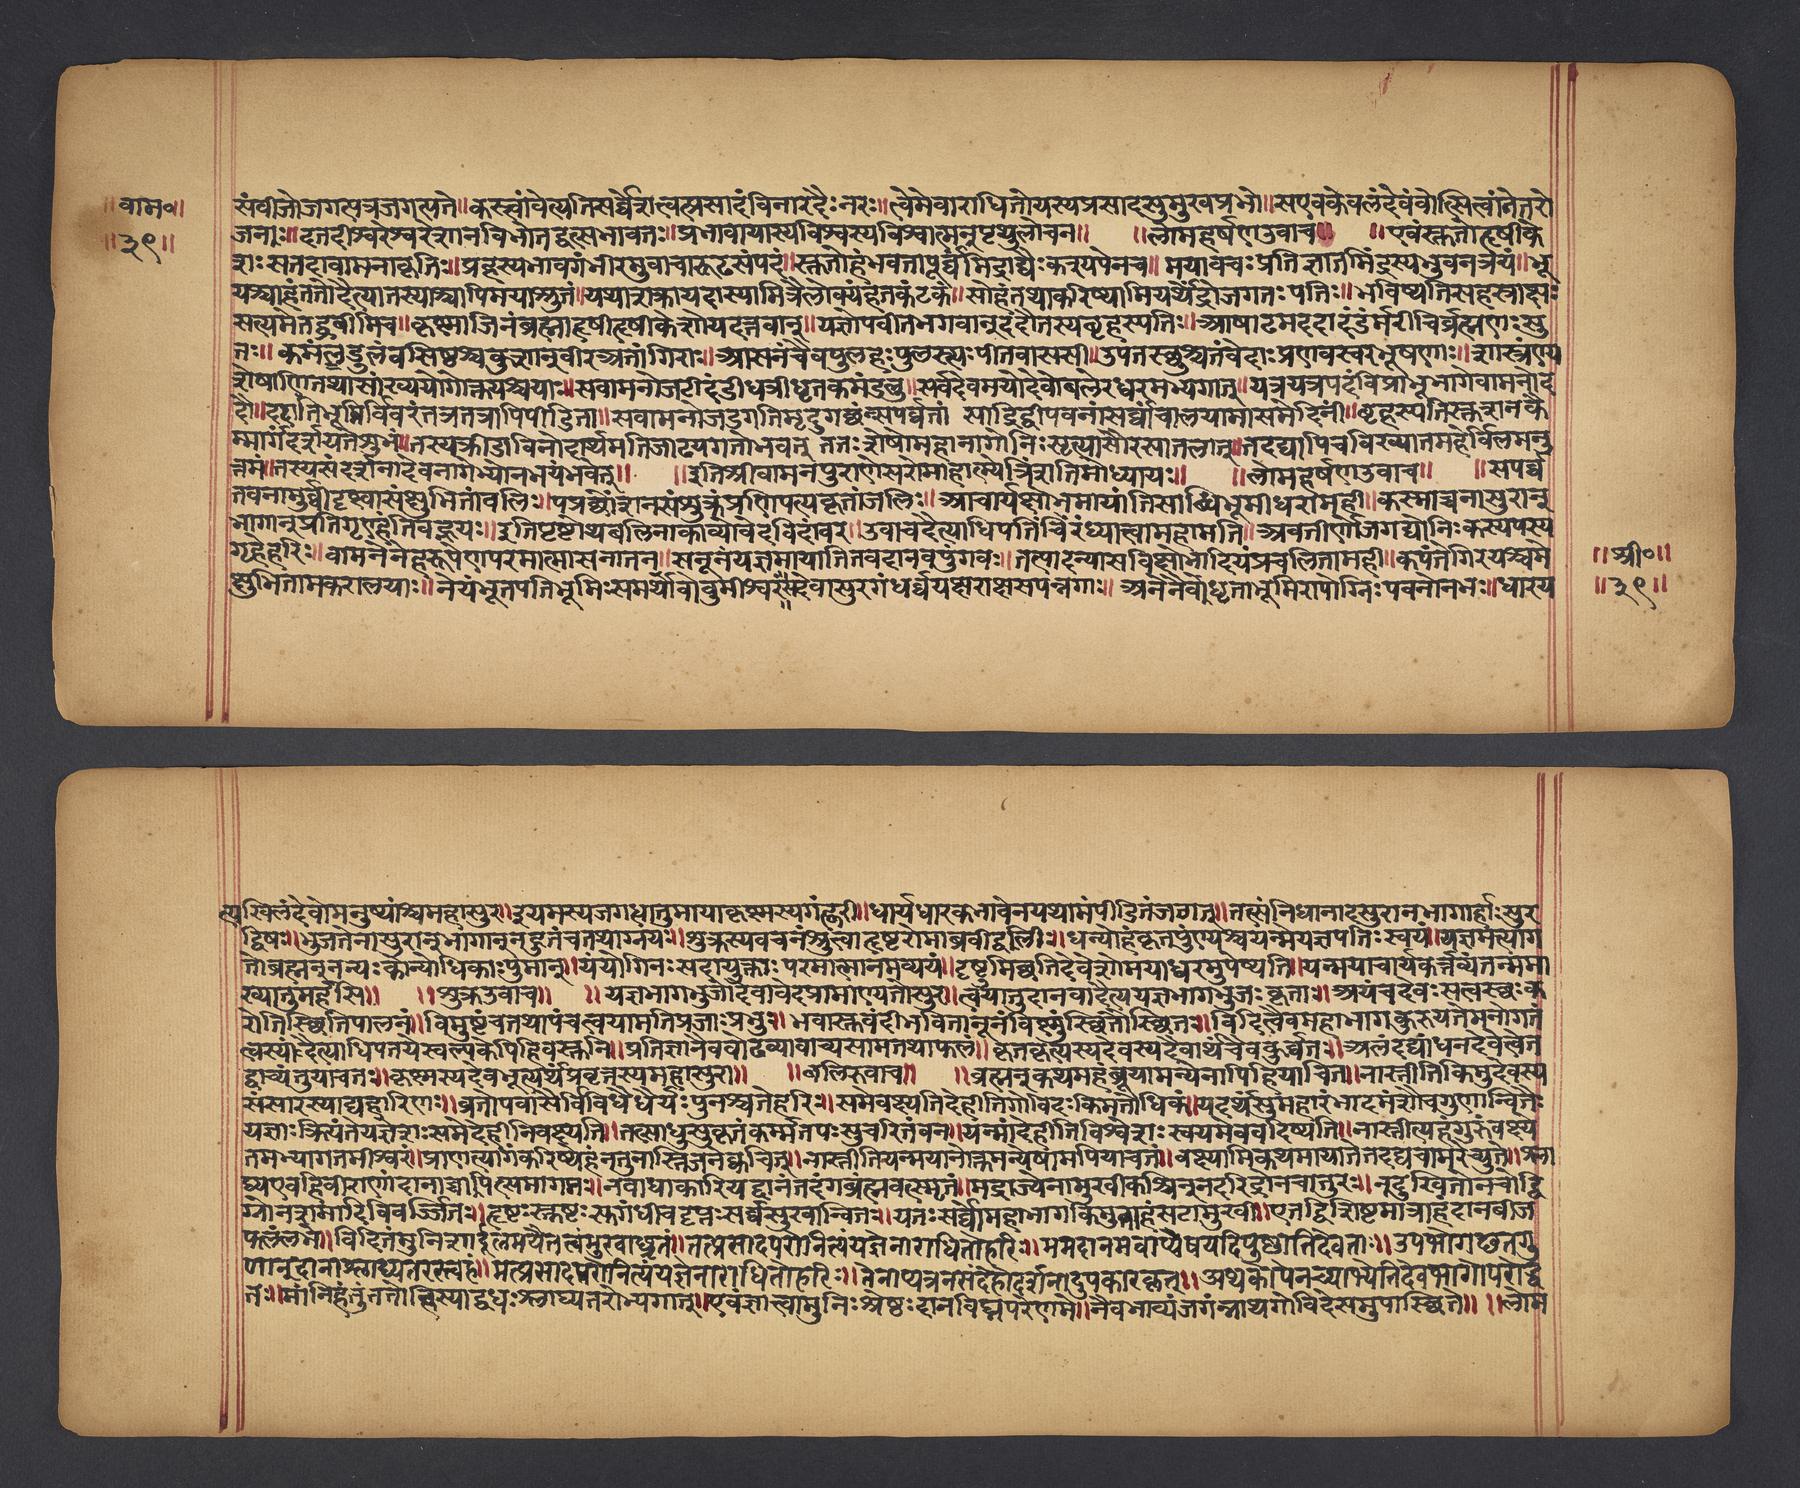 ॥वाम०॥
॥३९॥
संवीजोजगसत्रजगत्पते॥कस्त्वांवेत्स्यतिसर्व्वेशत्वत्प्रसादंविनारदैःनरः॥त्वमेवाराधितोयस्यप्रसादसुमुखप्रभो॥सएवकेवलंदेवंवोत्सित्वांनेतरो
जनाः॥ईश्वरेश्वरेशानविभोतद्वत्स्वभावतः॥प्रभावायास्यविश्वस्यविश्वात्मन्पृथुलोचन॥ ॥लोमहर्षणउवाच॥ ॥एवंस्तुतोहृषीके
शःसतदावामनाकृतिः॥प्रहस्यभावगंभीरमुवाचारूढसंपदं॥स्तुतोहंभवतापूर्व्वमिंद्राद्यैःकश्यपेनच॥मयावचःप्रतिज्ञातमिंद्रस्यभुवनत्रयं॥भू
यश्चाहंततोदैत्यातस्याश्चापिमयाश्रुतं॥यथाशक्रायदास्यामित्रैलोक्यंहतकंटकं॥सोहंतथाकरिष्यामियथेंद्रोजगतःपतिः॥भविष्यतिसहस्राक्षः
सत्यमेतद्ब्रवीमिच॥कृष्माजिनंब्रह्माहृषीहृषीकेशायदत्तवान्॥यज्ञोपवीतंभगवान्ददौतस्यबृहस्पतिः॥आषाढमददादंडंमरीचिर्ब्रह्मणःसु
तः॥कमंडलुंवसिष्ठश्चकुशान्वीरअतांगिराः॥आसनंचैवपुलहःपुलस्त्यःपीतवाससी॥उपतस्थुश्चतंवेदाःप्रणवस्वरभूषणाः॥शास्त्रंण्य
शेषाणितथासांख्ययोगोक्तयश्चयाः॥सवामनोजटीदंडीछत्रीधृतकमंडलु॥सर्वदेवमयोदेवोबलेरध्वरमभ्यगात्॥यत्रयत्रपदंविप्राभूभागेवामनोद
दौ॥ददातिभूमिर्विवरंतत्रतत्रापिपीडिता॥सवामनोजडगतिमृदुगछंत्सपर्व्वतां साद्विद्वीपवनांसर्व्वांचालयामासमेदिनीं॥बृहस्पतिस्तुशनकै
र्म्मार्गंदर्शयतेशुभं॥तस्यक्रीडाविनोदार्थमतिजाढ्यगतोभवत् ततःशेषोमहानागोनिःसृत्यासौरसातलात्॥तदद्यापिचविख्यातमहेर्विलमनु
त्तमं॥तस्यसंदर्शनादेवनागेभ्योनभयंभवेत्॥ ॥इतिश्रीवामनपुराणेसरोमाहात्म्येत्रिंशतिमोध्यायः॥ ॥लोमहर्षणउवाच॥ ॥सपर्व्व
तवनामुर्व्वींदृष्ट्वासंक्षुभितांबलिः॥पप्रछोशनसंशुक्रंप्रणिपत्यकृतांजलिः॥आचार्यक्षोभमायातिसाब्धिभूमीधरामही॥कस्माच्चनासुरान्
भागान्प्रतिगृह्णंतिवह्नयः॥इतिपृष्टाथबलिनाकाव्योवेदविदांवर॥उवाचदैत्याधिपतिंचिरंध्यात्वामहामति॥अवतीर्णोजगद्योनिःकस्यपस्य
गृहेहरिः॥वामनेनेहरूपेणपरमात्मासनातन॥सनूनंयज्ञमायातितवदानवपुंगवः॥तत्पादन्यासविक्षोभादियंप्रचलितामही॥कंपंतेगिरयश्चमे
क्षुभितामकरालयाः॥नेयंभूतपतिंभूमिःसमर्थावोढुमीश्वरंसदेवासुरगंधर्व्वयक्षराक्षसपन्नगाः॥अनेनैवोधृताभूमिरापोग्निःपवनोनभः॥धारय
॥श्री०॥
॥३९॥
त्यखिलंदेवोमनुष्यांश्चमहासुर॥इयमस्यजगद्धातुमायाकृष्मस्यगंह्वरी॥धार्यधारकभावेनययथामंपीडितंजगत्॥तत्संनिधानादसुरानभागार्हाःसुर
द्विषः॥भुंजतेनासुरान्भागान्नहुतंचतथाग्नयः॥शुक्रस्यवचनंश्रुत्वाहृष्टरोमाब्रवीद्वलिः॥धन्योहंकृतपुंण्यश्चयन्मेयज्ञपतिःस्वयं॥यज्ञमभ्यांग
तोब्रह्मन्नन्यःकोन्योधिकःपुमान्॥यंयोगिनःसदायुक्ताःपरमात्मानमव्ययं॥द्रष्टुमिच्छंतिदेवेशोमयाध्वरमुपेष्यति॥यन्मयाचार्यकर्त्तव्यंतन्ममा
ख्यातुमर्हसि॥ ॥शुक्रउवाच॥ ॥यज्ञभागभुजोदेवावेदप्रामाण्यतोसुर॥त्वयातुदानवादैत्ययज्ञभागभुजःकृताः॥अयंचदेवःसत्वस्थःक
रोतिस्थितिपालनं॥विसृष्टंचतथापंचत्वयामतिप्रजाःप्रभु॥भवास्तुवंदीभवितानूनंविष्मुस्थितौस्थितः॥विदित्वैवमहाभागकुरुयत्तेमनोगतं
त्वस्यांदैत्याधिपतयेस्वल्पकेपिहिवस्तुनि॥प्रतिज्ञानैववोढव्यावाच्यंसामतथाफलं॥कृतकृत्यस्यदेवस्यदेवार्थंचैवकुर्व्वतः॥अलंदद्यांधनंदेवेत्वेत
द्वाच्यंतुयाचतः॥कृष्मस्यदेवभूत्यर्थंप्रवृत्तस्यमहासुरा॥ ॥बलिरुवाच॥ ॥ब्रह्मन्कथमहंब्रूयामन्येनापिहियाचित॥नास्तीतिकिमुदेवस्य
संसारस्याघहारिणः॥व्रतोपवासैर्विविधैर्यःपुनश्चतेहरिः॥समेवक्ष्यतिदेहीतिगोविंदःकिमतोधिकं॥यदर्थंसुमहारंभादमशौचगुणान्वितः
यज्ञाःक्रियंतेयज्ञेशःसमेदेहीतिवक्ष्यति॥तत्साधुसुकृतंकर्म्मतपःसुचरितंवन॥यन्मांदेहीतिविश्वेशःस्वयमेववदिष्यति॥नास्तीत्यहंगुरुंवक्ष्य
तमभ्यागतमीश्वरं॥प्राणत्यागंकरिष्येहंनतुनास्तिजनेक्वचित्॥नास्तीतियन्मयानोक्तमन्येषामपियाचतां॥वक्ष्यामिकथमायातेतदद्यचामरेच्युते॥श्ला
घ्यएवहिवीराणांदानाच्चापित्समागमः॥नवाधाकारियद्दानंतदंगबह्मवत्स्मृतं॥मद्राज्येनासुखीकश्चिन्नदरिद्रोनचातुरः॥नदुःखितोनचोद्वि
ग्नोनशमादिविवर्ज्जितः॥हृष्टःस्तुष्टःसुगंधीचतृप्तःसर्व्वसुखान्वितः॥यतःसर्व्वोमहाभागकिमुताहंसदासुखी॥एतद्विशिष्टमात्राहंदानबीज
फलंलभे॥विदितंमुनिशार्दूलमयैतत्त्वंमुखाध्रुतं॥तत्प्रसादपरोनित्यंयज्ञेनाराधितोहरिः॥ममदानमवाप्यैषयदिपुष्णोतिदेवताः॥उपभोगछतगु
णान्दानाश्लाघ्यतरस्त्वहं॥मत्प्रसादपरोनित्यंयज्ञेनाराधितोहरिः॥तेनाप्यत्रनसंदेहोदर्शनादुपकारकृत्॥अथकोपेनचाभ्येतिदेवभागोपरोद्ध
तः॥मांनिहंतुंततोपिस्याद्वधःश्लाघ्यतरोभ्यगात्॥एवंज्ञात्वामुनिःश्रेष्ठःदानविघ्नपरेणमे॥नैवभाव्यंजगंन्नाथगोविंदेसमुपास्थिते॥ ॥लोम